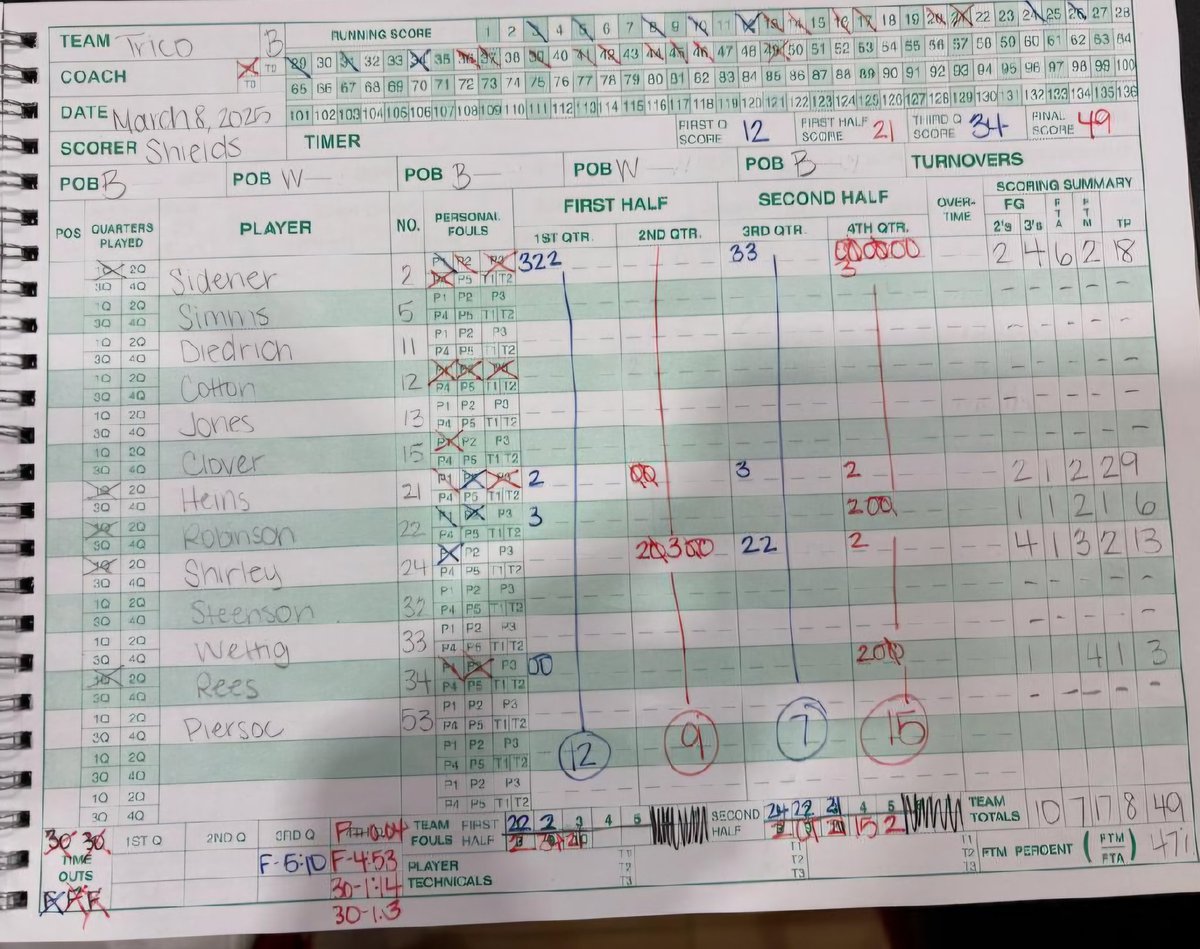 TEAM Trico B RUNNING SCORE 1 2 3 4 5 6 7 8 9 10 11 12 13 14 15 16 17 18 19 20 21 22 23 24 25 26 27 28
29 30 31 32 33 34 35 36 37 38 39 40 41 42 43 44 45 46 47 48 49 50 51 52 53 54 55 56 57 58 59 60 61 62 63 64
COACH TO TO
65 66 67 68 69 70 71 72 73 74 75 76 77 78 79 80 81 82 83 84 85 86 87 88 89 90 91 92 93 94 95 96 97 98 99 100
DATE March 8, 2025 101 102 103 104 105 106 107 108 109 110 111 112 113 114 115 116 117 118 119 120 121 122 123 124 125 126 127 128 129 130 131 132 133 134 135 136
SCORER Shields TIMER FIRST Q SCORE 12 FIRST HALF SCORE 21 THIRD Q SCORE 34 FINAL SCORE 49
POB B POB W POB B POB W POB B TURNOVERS
POS QUARTERS PLAYED PLAYER NO. PERSONAL FOULS FIRST HALF SECOND HALF OVER-TIME SCORING SUMMARY
1ST QTR. 2ND QTR. 3RD QTR. 4TH QTR. FG 2's 3's FTA FTM TP
1Q 2Q 3Q 4Q Sidener 2 P1 P2 P3 P4 P5 T1 T2 322 33 3 2 4 6 2 18
1Q 2Q 3Q 4Q Simms 5 P1 P2 P3 P4 P5 T1 T2
1Q 2Q 3Q 4Q Diedrich 11 P1 P2 P3 P4 P5 T1 T2
1Q 2Q 3Q 4Q Cotton 12 P1 P2 P3 P4 P5 T1 T2
1Q 2Q 3Q 4Q Jones 13 P1 P2 P3 P4 P5 T1 T2
1Q 2Q 3Q 4Q Clover 15 P1 P2 P3 P4 P5 T1 T2
1Q 2Q 3Q 4Q Heins 21 P1 P2 P3 P4 P5 T1 T2 2 00 3 2 2 1 2 2 9
1Q 2Q 3Q 4Q Robinson 22 P1 P2 P3 P4 P5 T1 T2 3 200 1 1 2 1 6
1Q 2Q 3Q 4Q Shirley 24 P1 P2 P3 P4 P5 T1 T2 20300 22 2 4 1 3 2 13
1Q 2Q 3Q 4Q Steenson 32 P1 P2 P3 P4 P5 T1 T2
1Q 2Q 3Q 4Q Wettig 33 P1 P2 P3 P4 P5 T1 T2
1Q 2Q 3Q 4Q Rees 34 P1 P2 P3 P4 P5 T1 T2 00 200 1 4 1 3
1Q 2Q 3Q 4Q Piersoc 53 P1 P2 P3 P4 P5 T1 T2
1Q 2Q 3Q 4Q P1 P2 P3 P4 P5 T1 T2 12 9 7 15
1Q 2Q 3Q 4Q P1 P2 P3 P4 P5 T1 T2
30 30 TIME OUTS F F F 1ST Q 2ND Q 3RD Q F-5:10 F-10:04 F-4:53 30-1:14 30-1.3
TEAM FOULS FIRST HALF 22 2 3 4 5 SECOND HALF 24 22 21 4 5 15 2 TEAM TOTALS 10 7 17 8 49
PLAYER TECHNICALS T1 T2 T3 T1 T2 T3 T2 T3 FTM PERCENT (FTM/FTA) 47%